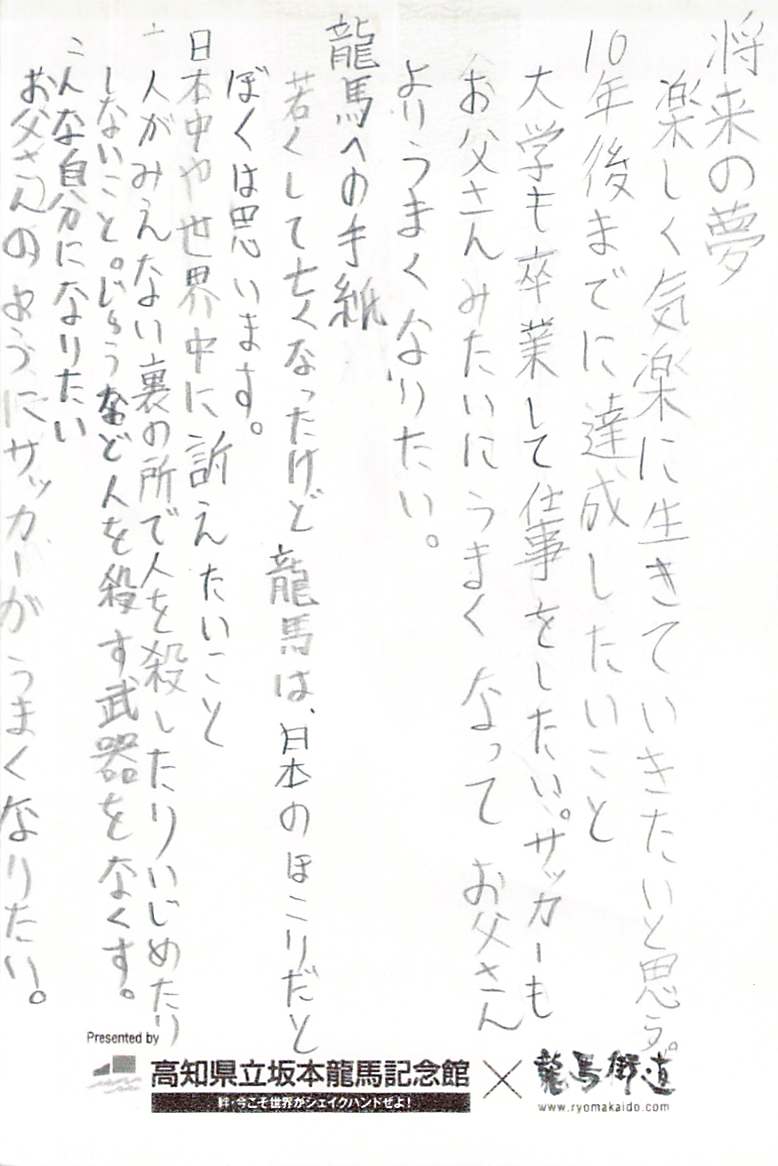 将来の夢
楽しく気楽に生きていきたいと思う。
10年後までに達成したいこと
大学も卒業して仕事をしたい。サッカーも
お父さんみたいにうまくなってお父さん
よりうまくなりたい。
龍馬への手紙
若くして亡くなったけど龍馬は、日本のほこりだと
ぼくは思います。
日本中や世界中に訴えたいこと
人がみえない裏の所で人を殺したりいじめたり
しないこと。じゅうなど人を殺す武器をなくす。
こんな自分になりたい
お父さんのようにサッカーがうまくなりたい。
Presented by
高知県立坂本龍馬記念館 × 龍馬街道
絆・今こそ世界がシェイクハンドぜよ!
www.ryomakaido.com